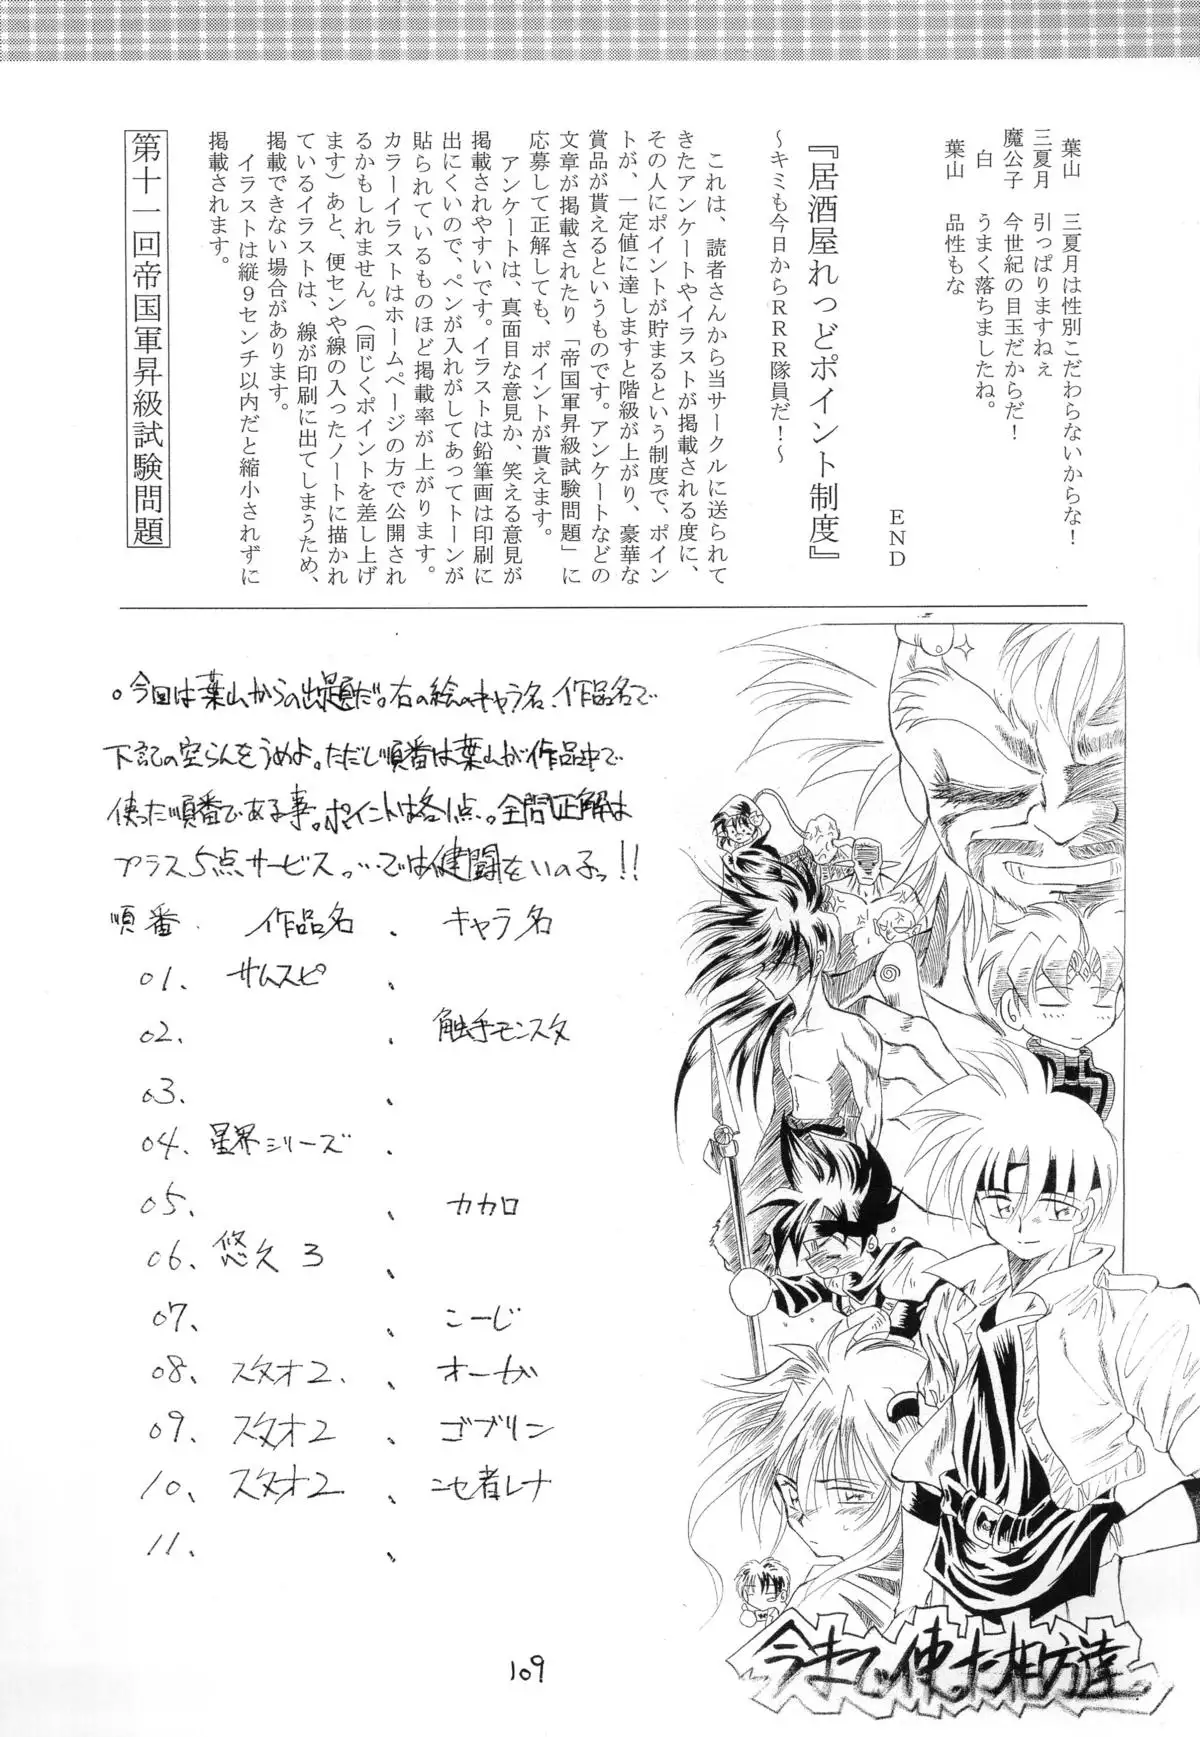 葉山　三夏月は性別こだわらないからな！
三夏月　引っぱりますねぇ
魔公子　今世紀の目玉だからだ！
白　うまく落ちましたね。
葉山　品性もな
ＥＮＤ
『居酒屋れっどポイント制度』
～キミも今日からＲＲＲ隊員だ！～
これは、読者さんから当サークルに送られて
きたアンケートやイラストが掲載される度に、
その人にポイントが貯まるという制度で、ポイン
トが、一定値に達しますと階級が上がり、豪華な
賞品が貰えるというものです。アンケートなどの
文章が掲載されたり「帝国軍昇級試験問題」に
応募して正解しても、ポイントが貰えます。
アンケートは、真面目な意見か、笑える意見が
掲載されやすいです。イラストは鉛筆画は印刷に
出にくいので、ペンが入れがしてあってトーンが
貼られているものほど掲載率が上がります。
カラーイラストはホームページの方で公開され
るかもしれません。（同じくポイントを差し上げ
ます）あと、便センや線の入ったノートに描かれ
ているイラストは、線が印刷に出てしまうため、
掲載できない場合があります。
イラストは縦９センチ以内だと縮小されずに
掲載されます。
第十一回帝国軍昇級試験問題
。今回は葉山からの出題だ。右の絵のキャラ名、作品名で
下記の空らんをうめよ。ただし順番は葉山が作品中で
使った順番である事。ポイントは各1点。全問正解は
プラス5点サービスっ…では健闘をいのるっ!!
順番　作品名、キャラ名
01. サムスピ、
02. 、触手モンスタ
03. 、
04. 星界シリーズ、
05. 、カカロ
06. 悠久3、
07. 、こーじ
08. スタオ2. 、オーガ
09. スタオ2、ゴブリン
10. スタオ2、ニセ者レナ
11. 、
今まで使った相方達
109